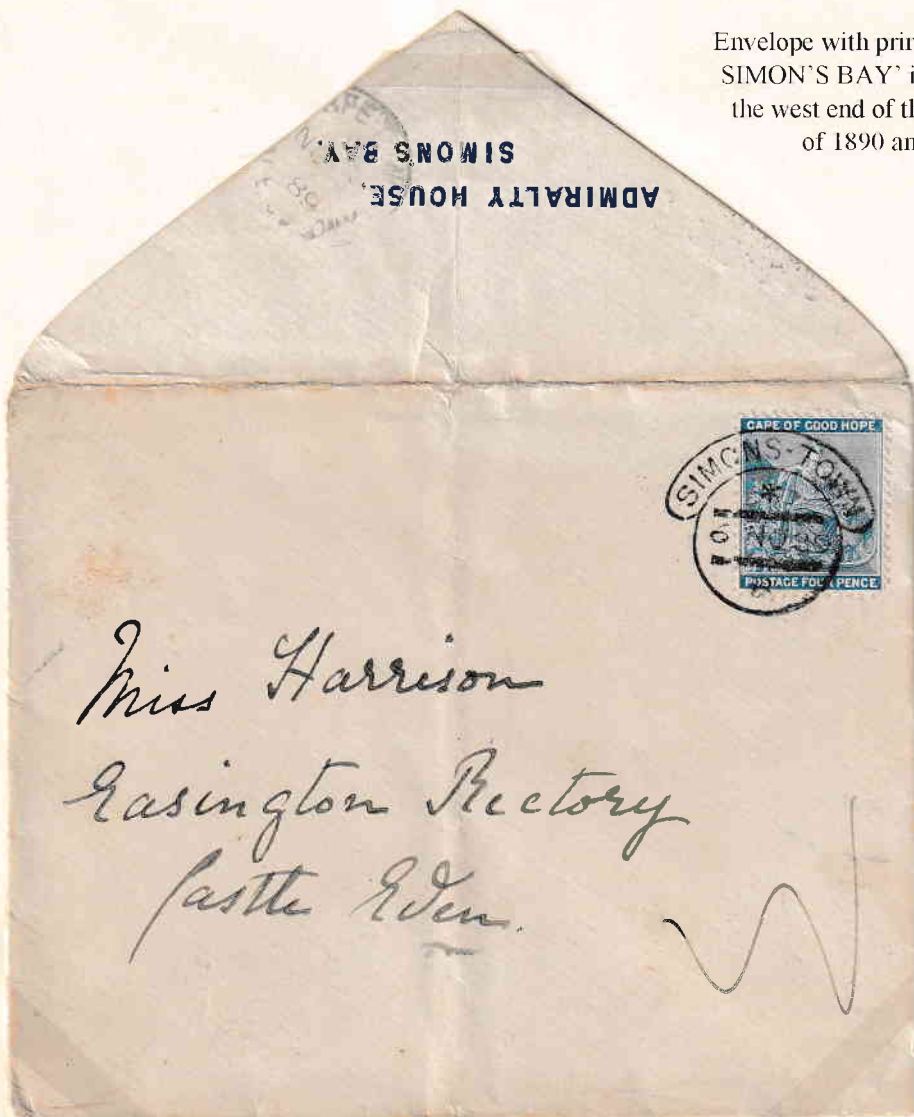 Envelope with prin
SIMON'S BAY' i
the west end of th
of 1890 an
ADMIRALTY HOUSE,
SIMONS BAY.
CAPE OF GOOD HOPE
SIMONS-TOWN
POSTAGE FOUR PENCE
Miss Harrison
Easington Rectory
Castle Eden.